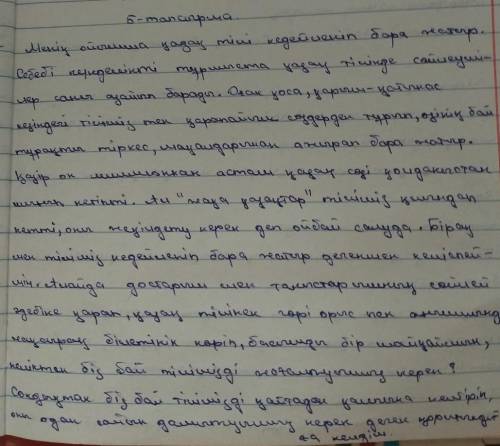 5-тапсырма.
Менің ойымша қазақ тілі кедейленіп бара жатыр.
Себебі күнделікті тұрмыста қазақ тілінде сөйлеуші-
лер саны азайып барады. Оған қоса, қарым-қатынас
кезіндегі тіліміз тек қарапайым сөздерден тұрып, өзінің бай
тұрақты тіркес, мақалдарынан айырылып бара жатыр.
Қазір он миллионнан астам қазақ сөзі қолданыстан
шығып кетіпті. Ал "жаңа қазақтар" тіліміз қиындап
кетті, оны жеңілдету керек деп ойбай салуда. Бірақ
мен тіліміз кедейленіп бара жатыр дегенмен келіспей-
мін. Алайда достарым мен таныстарымның сөйлеу
әдебіне қарап, қазақ тілінен гөрі орыс пен ағылшынды
жақсырақ білетінін көріп, басымды бір шайқаймын,
неліктен біз бай тілімізді жоғалтуымыз керек?
Сондықтан біз бай тілімізді қайтадан қалпына келтіріп,
оны одан сайын дамытуымыз керек деген қорытынды
ға келдім.